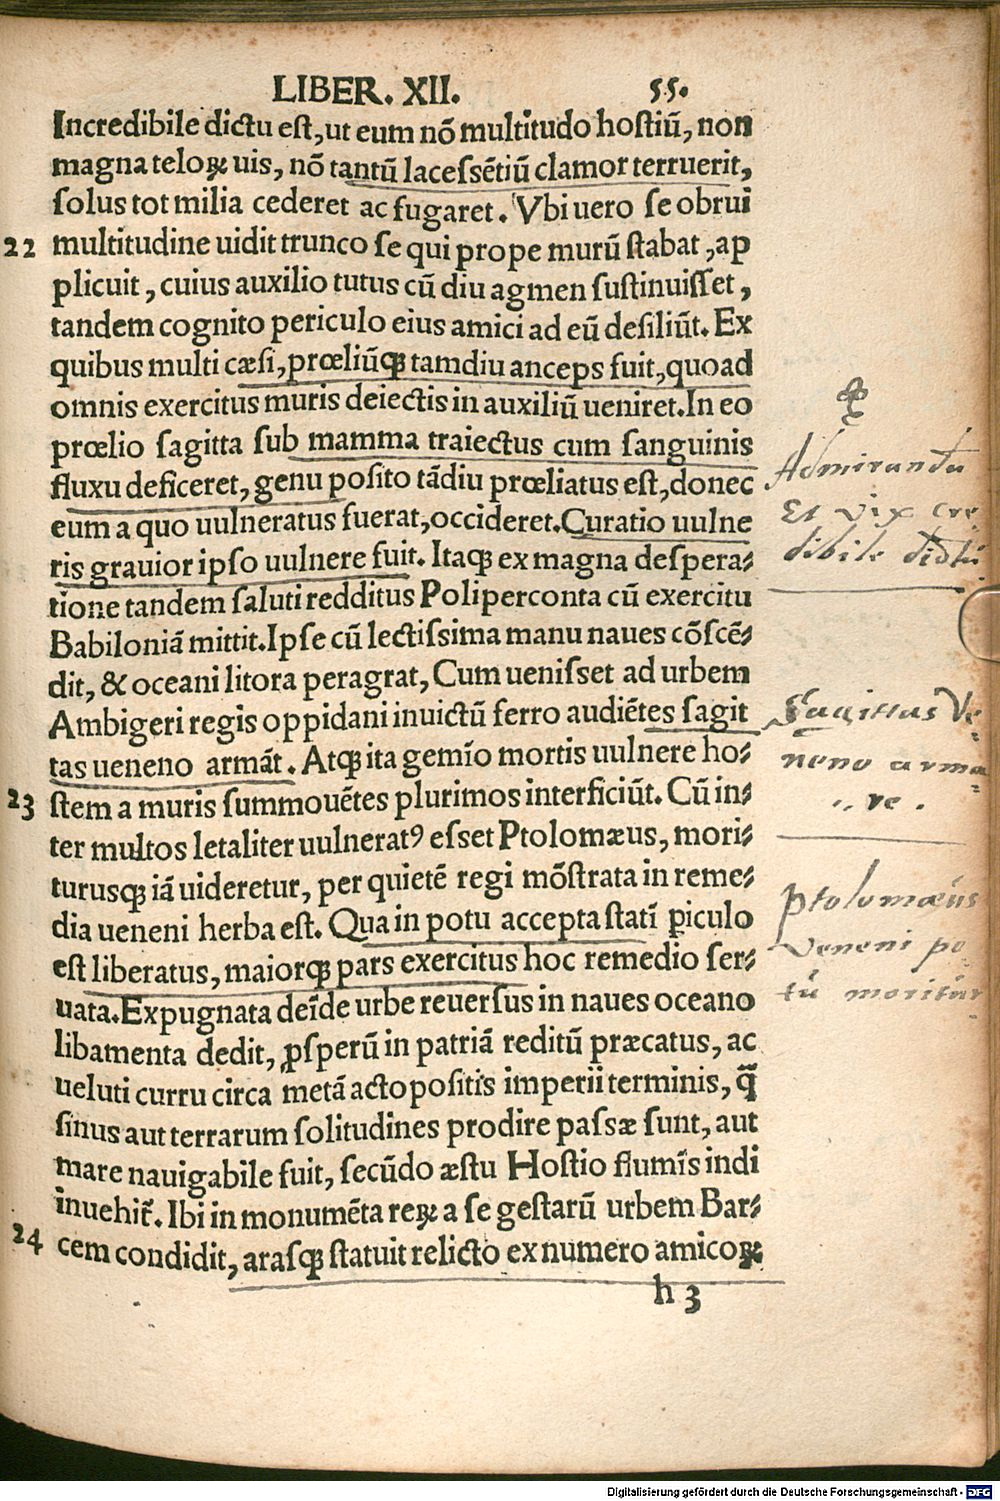 LIBER. XII. 55.
Incredibile dictu est, ut eum nõ multitudo hostiũ, non
magna teloꝝ uis, nõ tantũ lacessẽtiũ clamor terruerit,
solus tot milia cederet ac fugaret. Vbi uero se obrui
22 multitudine uidit trunco se qui prope murũ stabat, ap
plicuit, cuius auxilio tutus cũ diu agmen sustinuisset,
tandem cognito periculo eius amici ad eũ desiliũt. Ex
quibus multi cæsi, prœliũqꝫ tamdiu anceps fuit, quoad
omnis exercitus muris deiectis in auxiliũ ueniret. In eo
prœlio sagitta sub mamma traiectus cum sanguinis
fluxu deficeret, genu posito tãdiu prœliatus est, donec
eum a quo uulneratus fuerat, occideret. Curatio uulne
ris grauior ipso uulnere fuit. Itaqꝫ ex magna despera⸗
tione tandem saluti redditus Poliperconta cũ exercitu
Babiloniã mittit. Ipse cũ lectissima manu naues cõscẽ⸗
dit, & oceani litora peragrat, Cum uenisset ad urbem
Ambigeri regis oppidani inuictũ ferro audiẽtes sagit
tas ueneno armãt. Atqꝫ ita gemĩo mortis uulnere ho⸗
23 stem a muris summouẽtes plurimos interficiũt. Cũ in⸗
ter multos letaliter uulneratꝰ esset Ptolomæus, mori⸗
turusqꝫ iã uideretur, per quietẽ regi mõstrata in reme⸗
dia ueneni herba est. Qua in potu accepta statĩ ꝑiculo
est liberatus, maiorqꝫ pars exercitus hoc remedio ser⸗
uata. Expugnata deĩde urbe reuersus in naues oceano
libamenta dedit, ꝓsperũ in patriã reditũ præcatus, ac
ueluti curru circa metã acto positis imperii terminis, q̃
sinus aut terrarum solitudines prodire passæ sunt, aut
mare nauigabile fuit, secũdo æstu Hostio flumĩs indi
inuehit̃. Ibi in monumẽta reꝝ a se gestarũ urbem Bar⸗
24 cem condidit, arasqꝫ statuit relicto ex numero amicoꝝ
h 3
Admirandu
Et vix cre
dibile dictũ
Sagittas Ve⸗
neno arma⸗
re.
Ptolomæus
Veneni po
tũ moritur
Digitalisierung gefördert durch die Deutsche Forschungsgemeinschaft - DFG